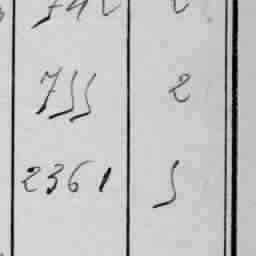 755 2
2361 5